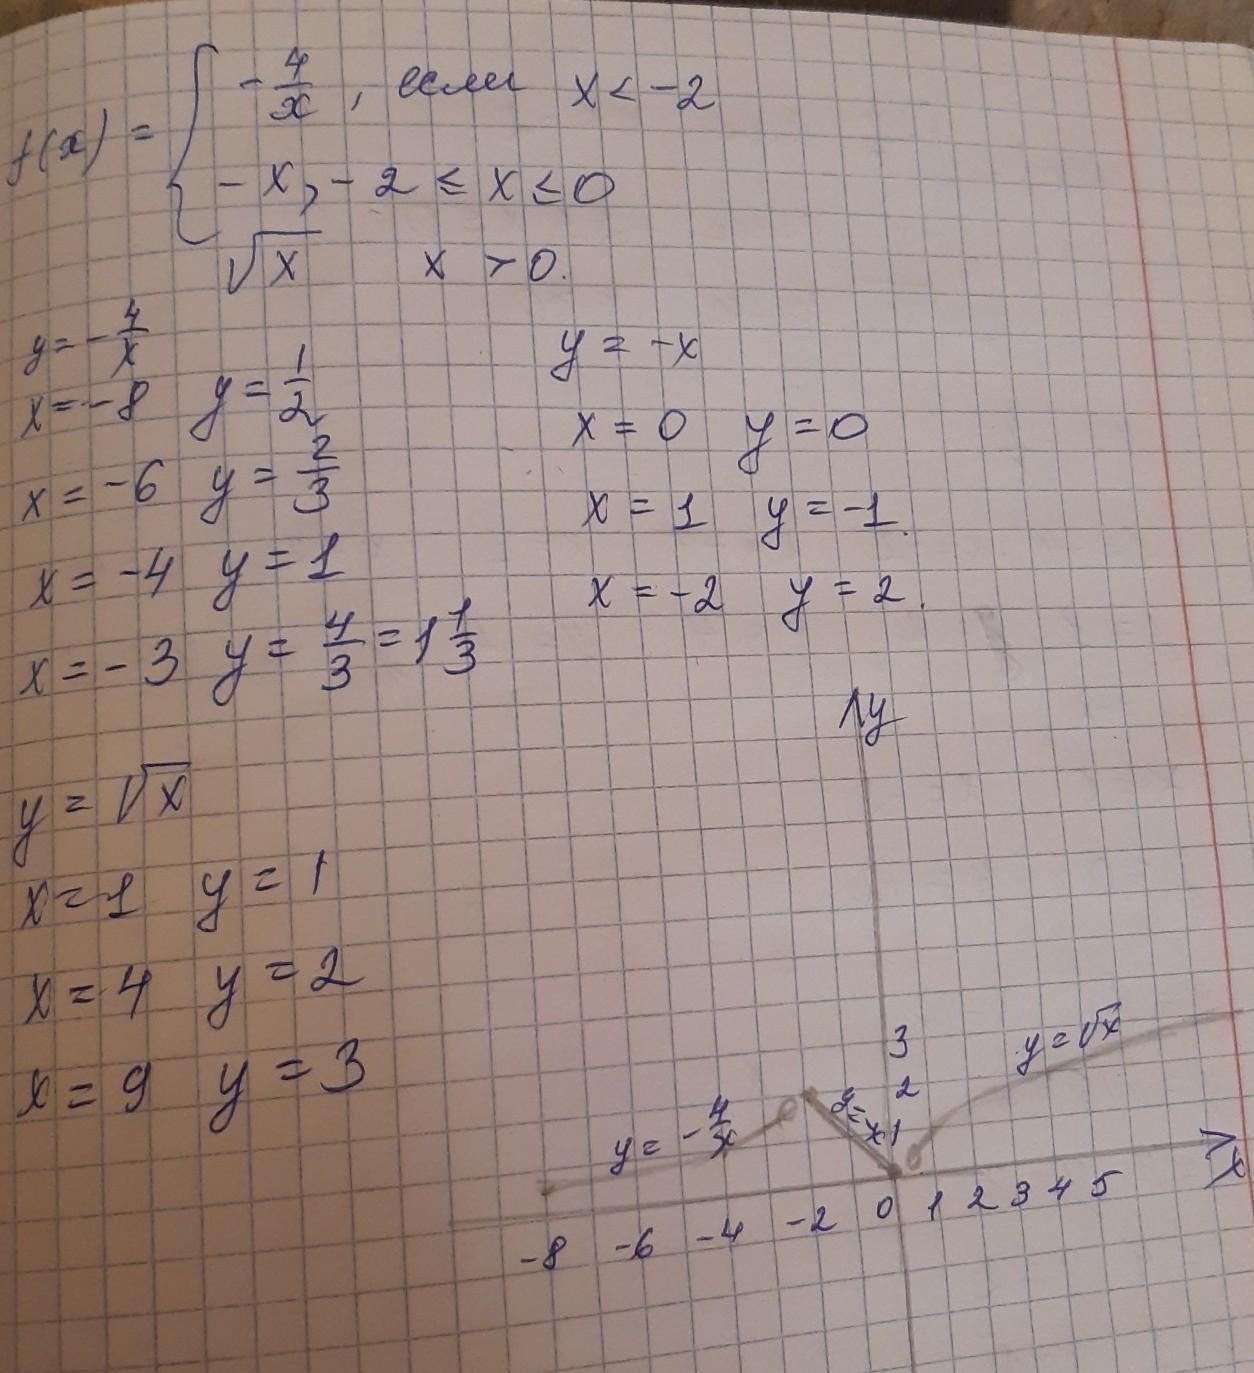 f(x) = { -4/x, если x < -2
-x, -2 ≤ x ≤ 0
√x x > 0.
y = -4/x
x = -8 y = 1/2
x = -6 y = 2/3
x = -4 y = 1
x = -3 y = 4/3 = 1 1/3
y = -x
x = 0 y = 0
x = 1 y = -1.
x = -2 y = 2.
y = √x
x = 1 y = 1
x = 4 y = 2
x = 9 y = 3
y
3
2
1
y = √x
y = -x
y = -4/x
-8 -6 -4 -2 0 1 2 3 4 5
x